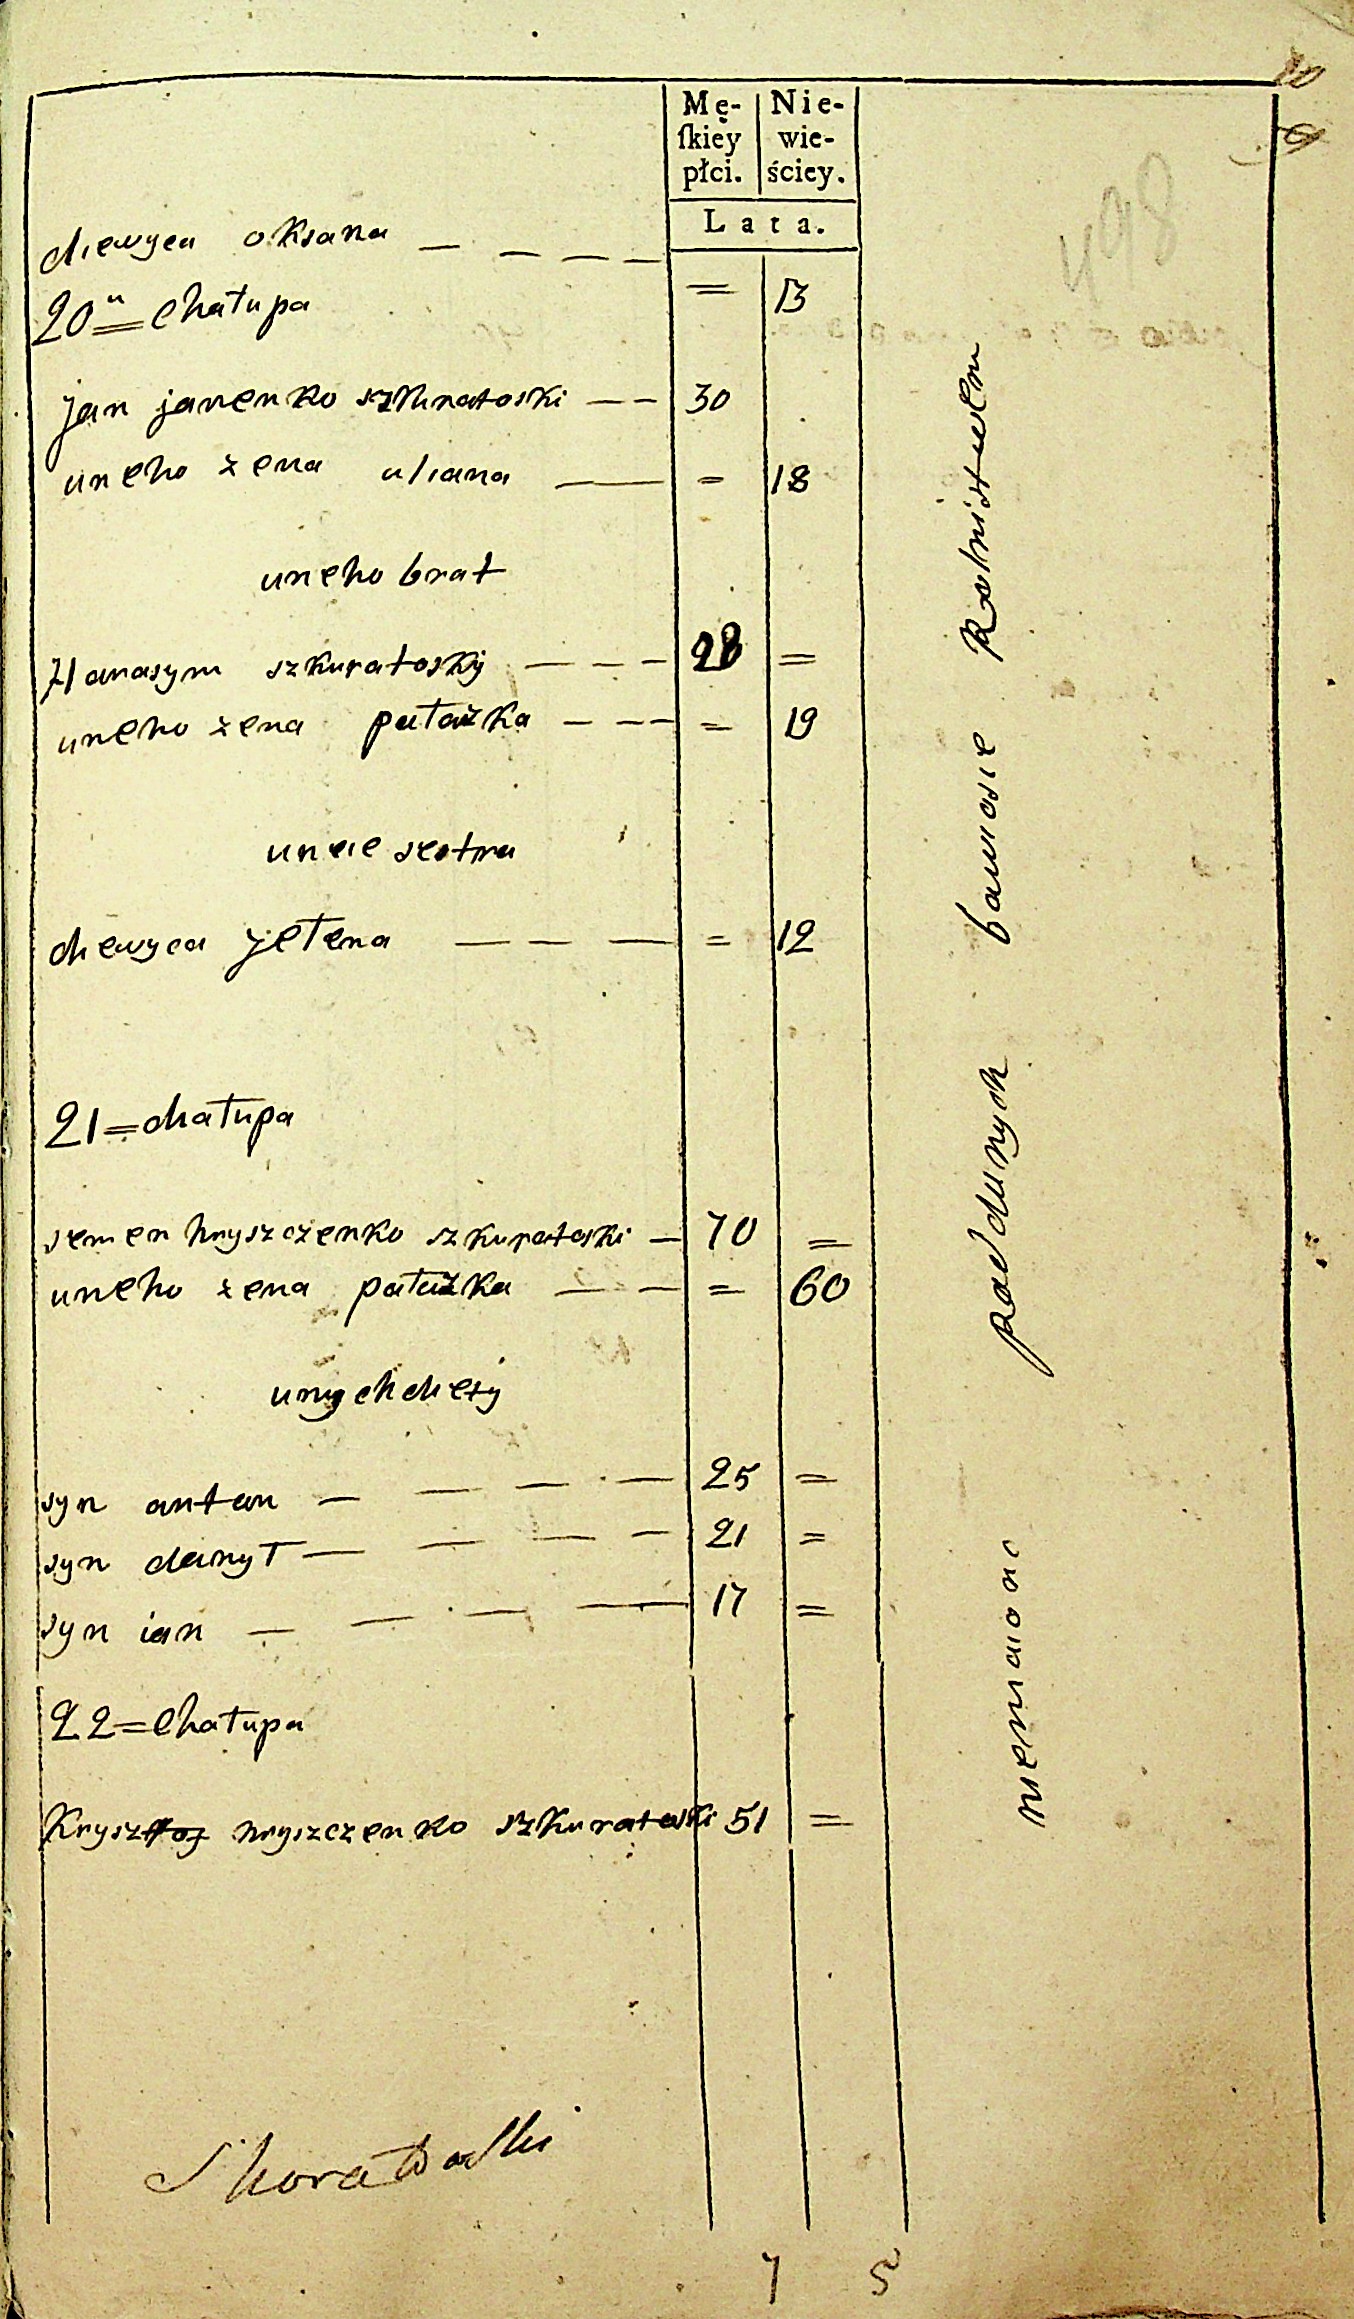 Mę-
ſkiey
płci.
Nie-
wie-
ściey.
Lata.
498
diewyca oksana — — — —
= 13
20 = chałupa
jan janenko szkuratoski — — 30
uneho żena uliana — = 18
uneho brat
Hanasym szkuratoskÿ — — — 28 =
uneho żena pałażka — — — = 19
uneie sestra
diewyca jełena — — — = 12
21 = chałupa
semen hryszczenko szkuratoski — 70 =
uneho żena pałażka — — = 60
unych diety
syn anton — — — — 25 =
syn danył — — — — 21 =
syn ian — — — — 17 =
22 = chałupa
hryszczenko szkuratoski 51 =
7 5
poddanych bawiosie Rolnistwem